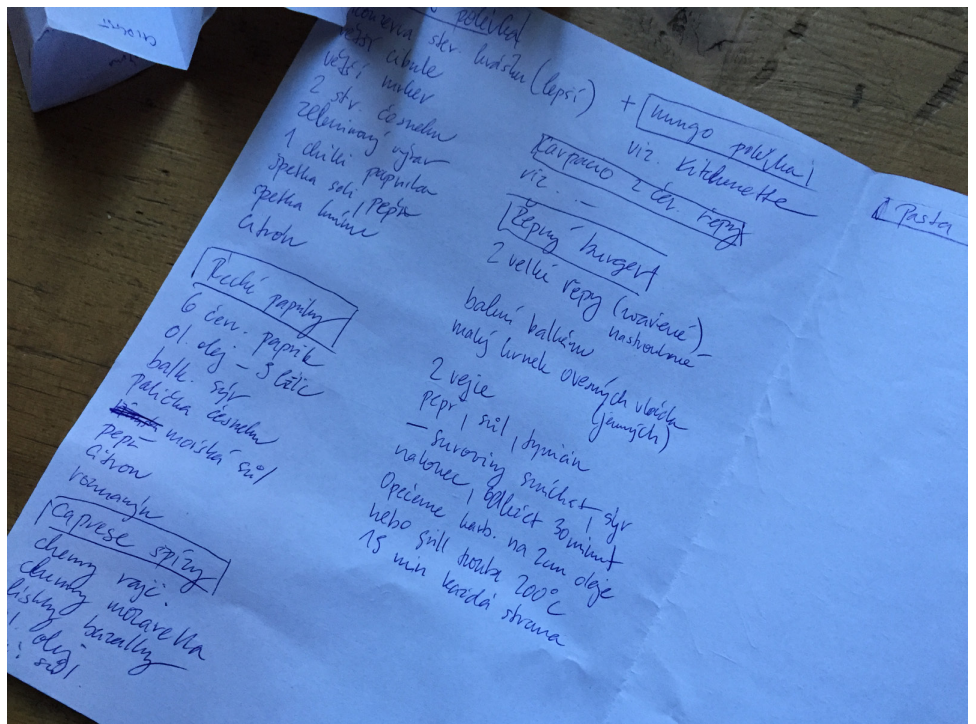 polévka
konzerva ster. hrášku (lepší)
větší cibule
větší mrkev
2 str. česneku
zeleninový vývar
1 chilli paprika
špetka soli, pepře
špetka kmínu
citron
Řecké papriky
6 červ. paprik
ol. olej – 3 lžíce
balk. sýr
palička česneku
mořská sůl
pepř
citron
rozmarýn
Caprese špízy
cherry rajč.
cherry mozarella
lístky bazalky
olej
sůl
+ mungo polévka
viz. Kitchenette
Karpacio z čer. řepy
viz. –
Řepný burger
2 velké řepy (uvařené)
nastrouhané
balení balkánu
malý hrnek ovesných vloček
(jemných)
2 vejce
pepř, sůl, tymián
– suroviny smíchat, sýr
nakonec, odležet 30 minut
Opečeme karb. na 2cm oleje
nebo gril trouba 200°C
15 min každá strana
Pasta